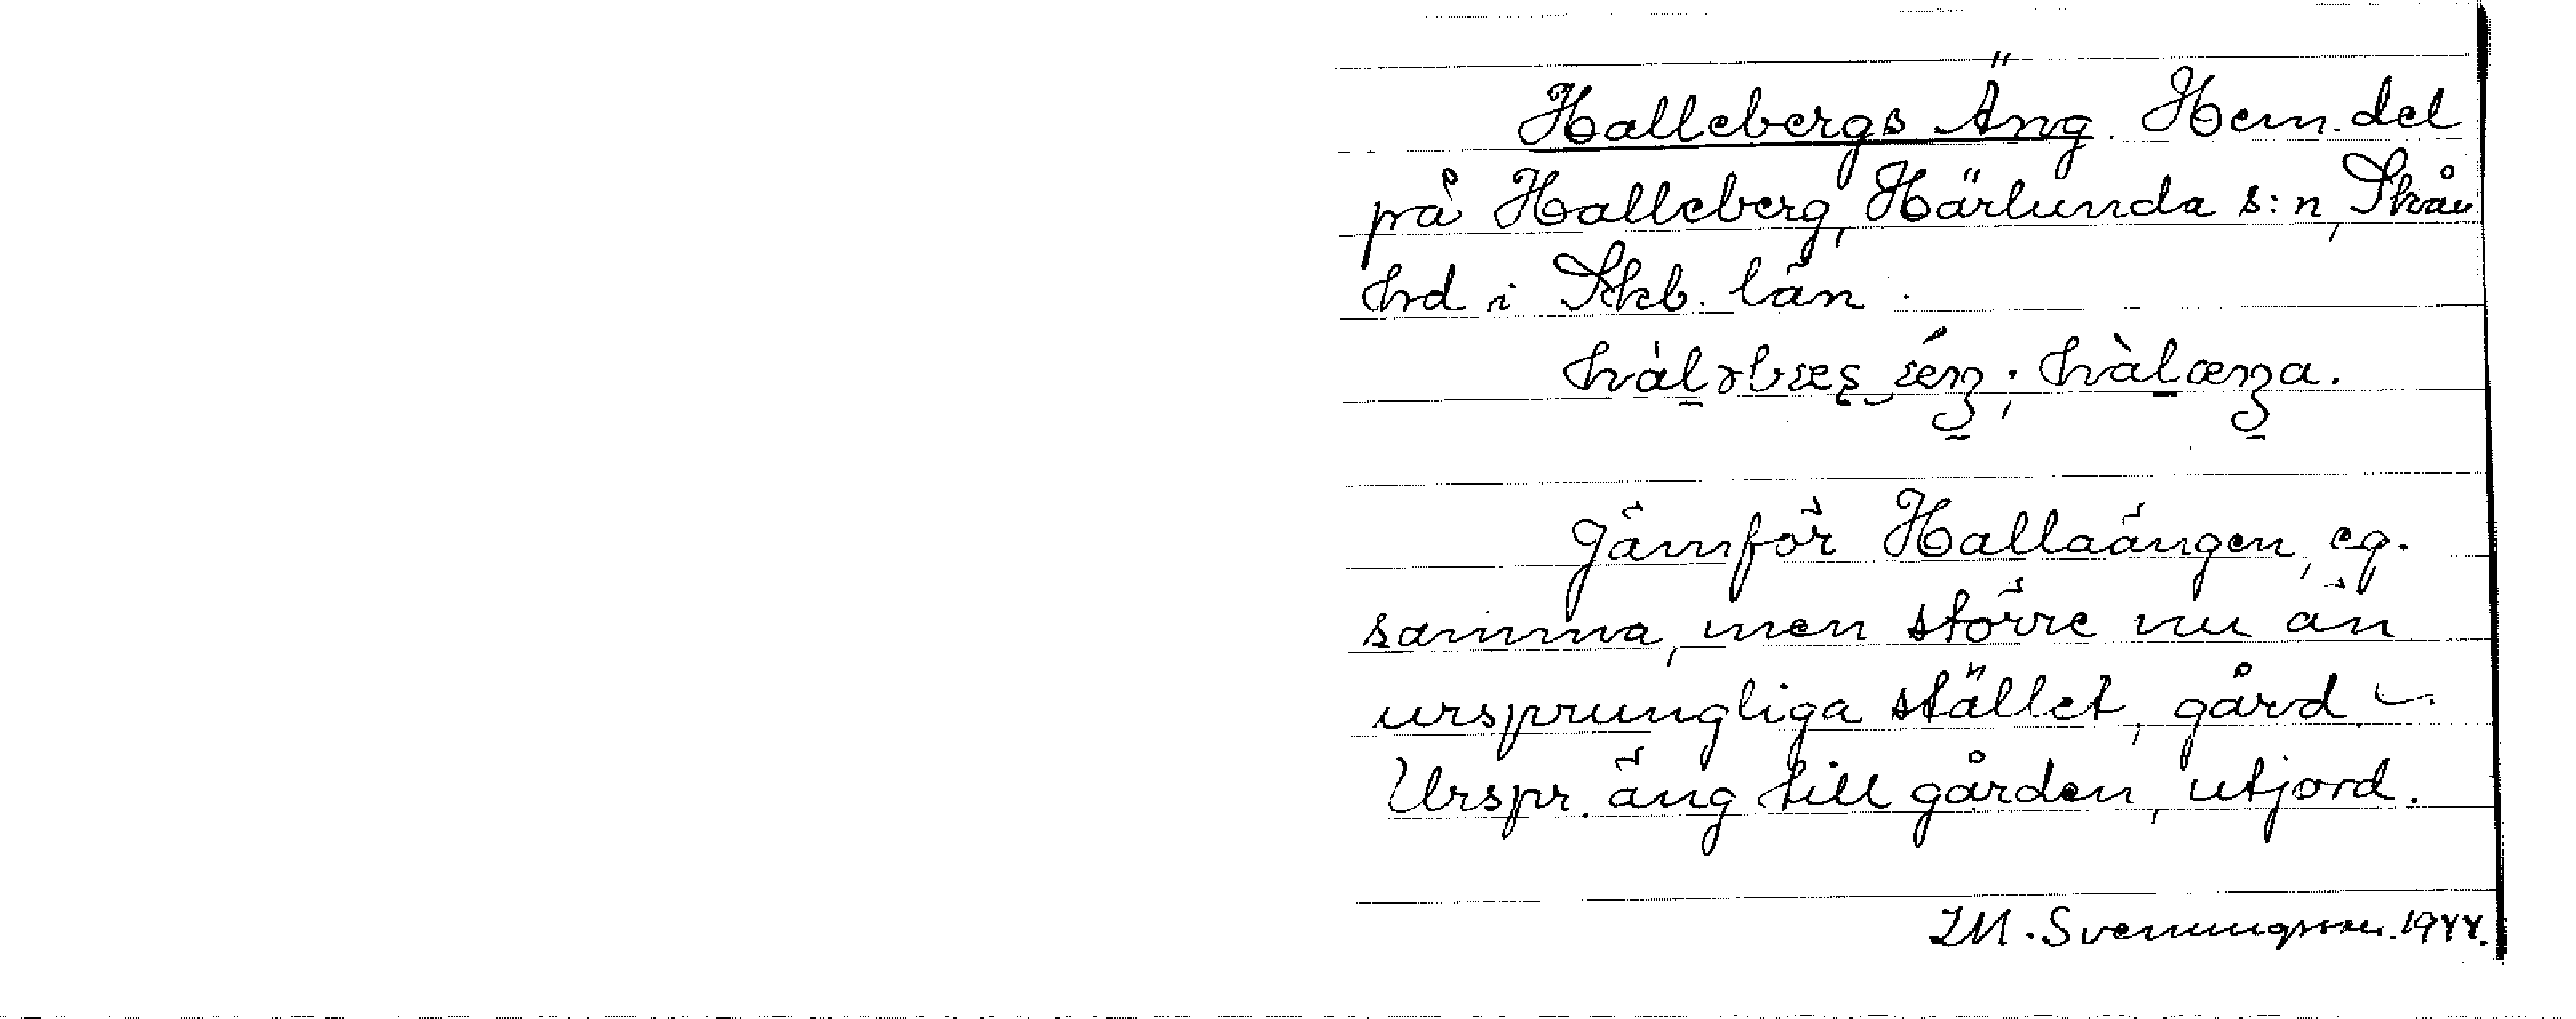 Hallebergs Äng. Hem. del
på Halleberg, Härlunda s:n, Skån
hrd i Skb. län.
Jämför Hallaängen, eg.
samma, men större nu än
ursprungliga stället, gård.
Urspr. äng till gården, utjord.
IM. Svenungsson. 1944.